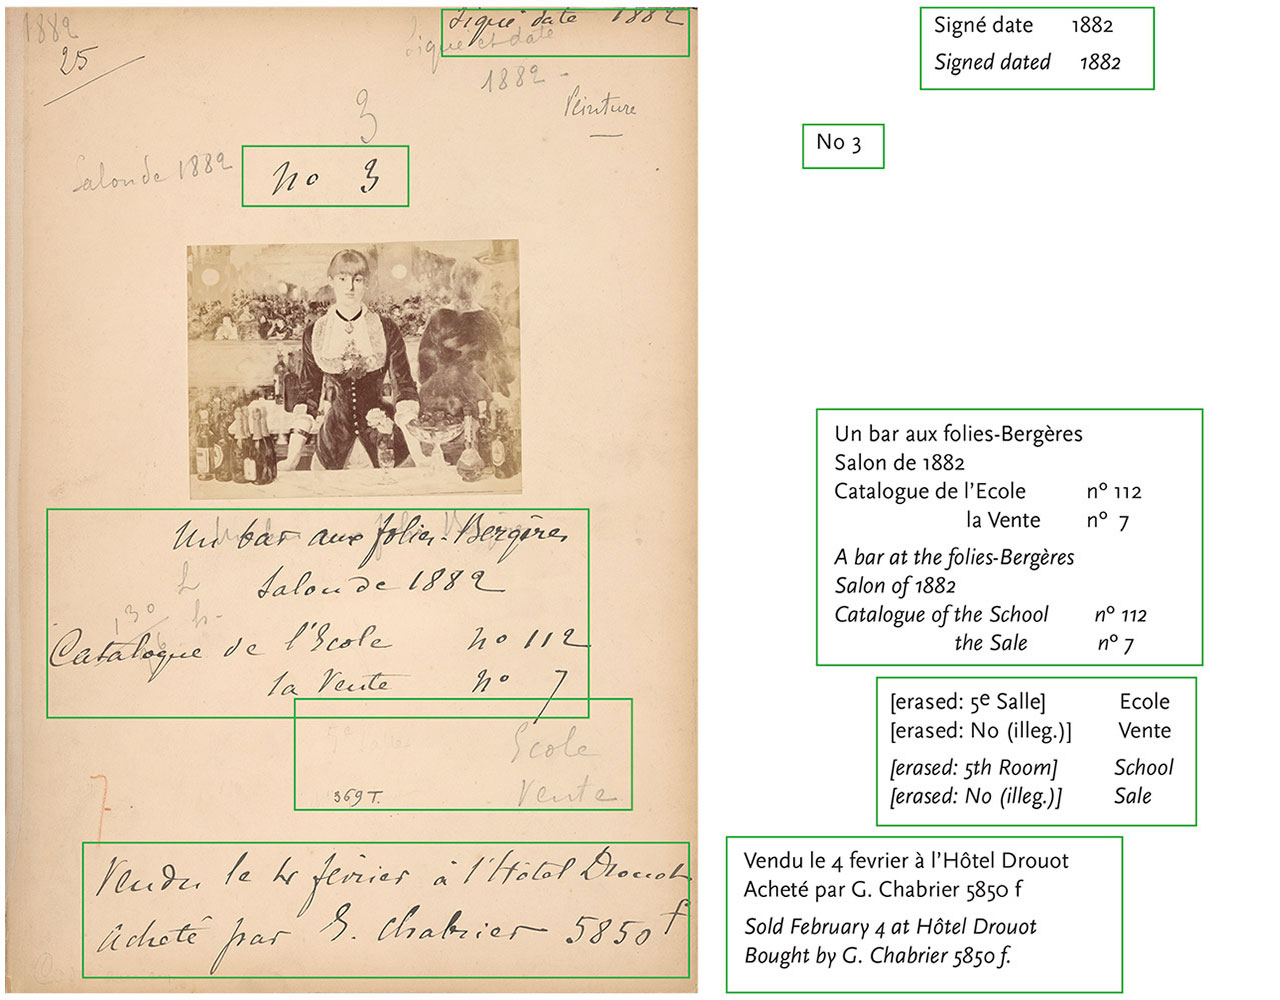 1882
25
Signé date 1882
Signé et date
1882 -
Peinture
3
Salon de 1882
No 3
Un bar aux folies-Bergères
Salon de 1882
130
Catalogue de l'Ecole no 112
la Vente no 7
5e Salle Ecole
369 T. Vente
7
Vendu le 4 février à l'Hôtel Drouot
Acheté par G. Chabrier 5850 f
Signé date 1882
Signed dated 1882
No 3
Un bar aux folies-Bergères
Salon de 1882
Catalogue de l’Ecole nº 112
la Vente nº 7
A bar at the folies-Bergères
Salon of 1882
Catalogue of the School nº 112
the Sale nº 7
[erased: 5e Salle] Ecole
[erased: No (illeg.)] Vente
[erased: 5th Room] School
[erased: No (illeg.)] Sale
Vendu le 4 fevrier à l’Hôtel Drouot
Acheté par G. Chabrier 5850 f
Sold February 4 at Hôtel Drouot
Bought by G. Chabrier 5850 f.